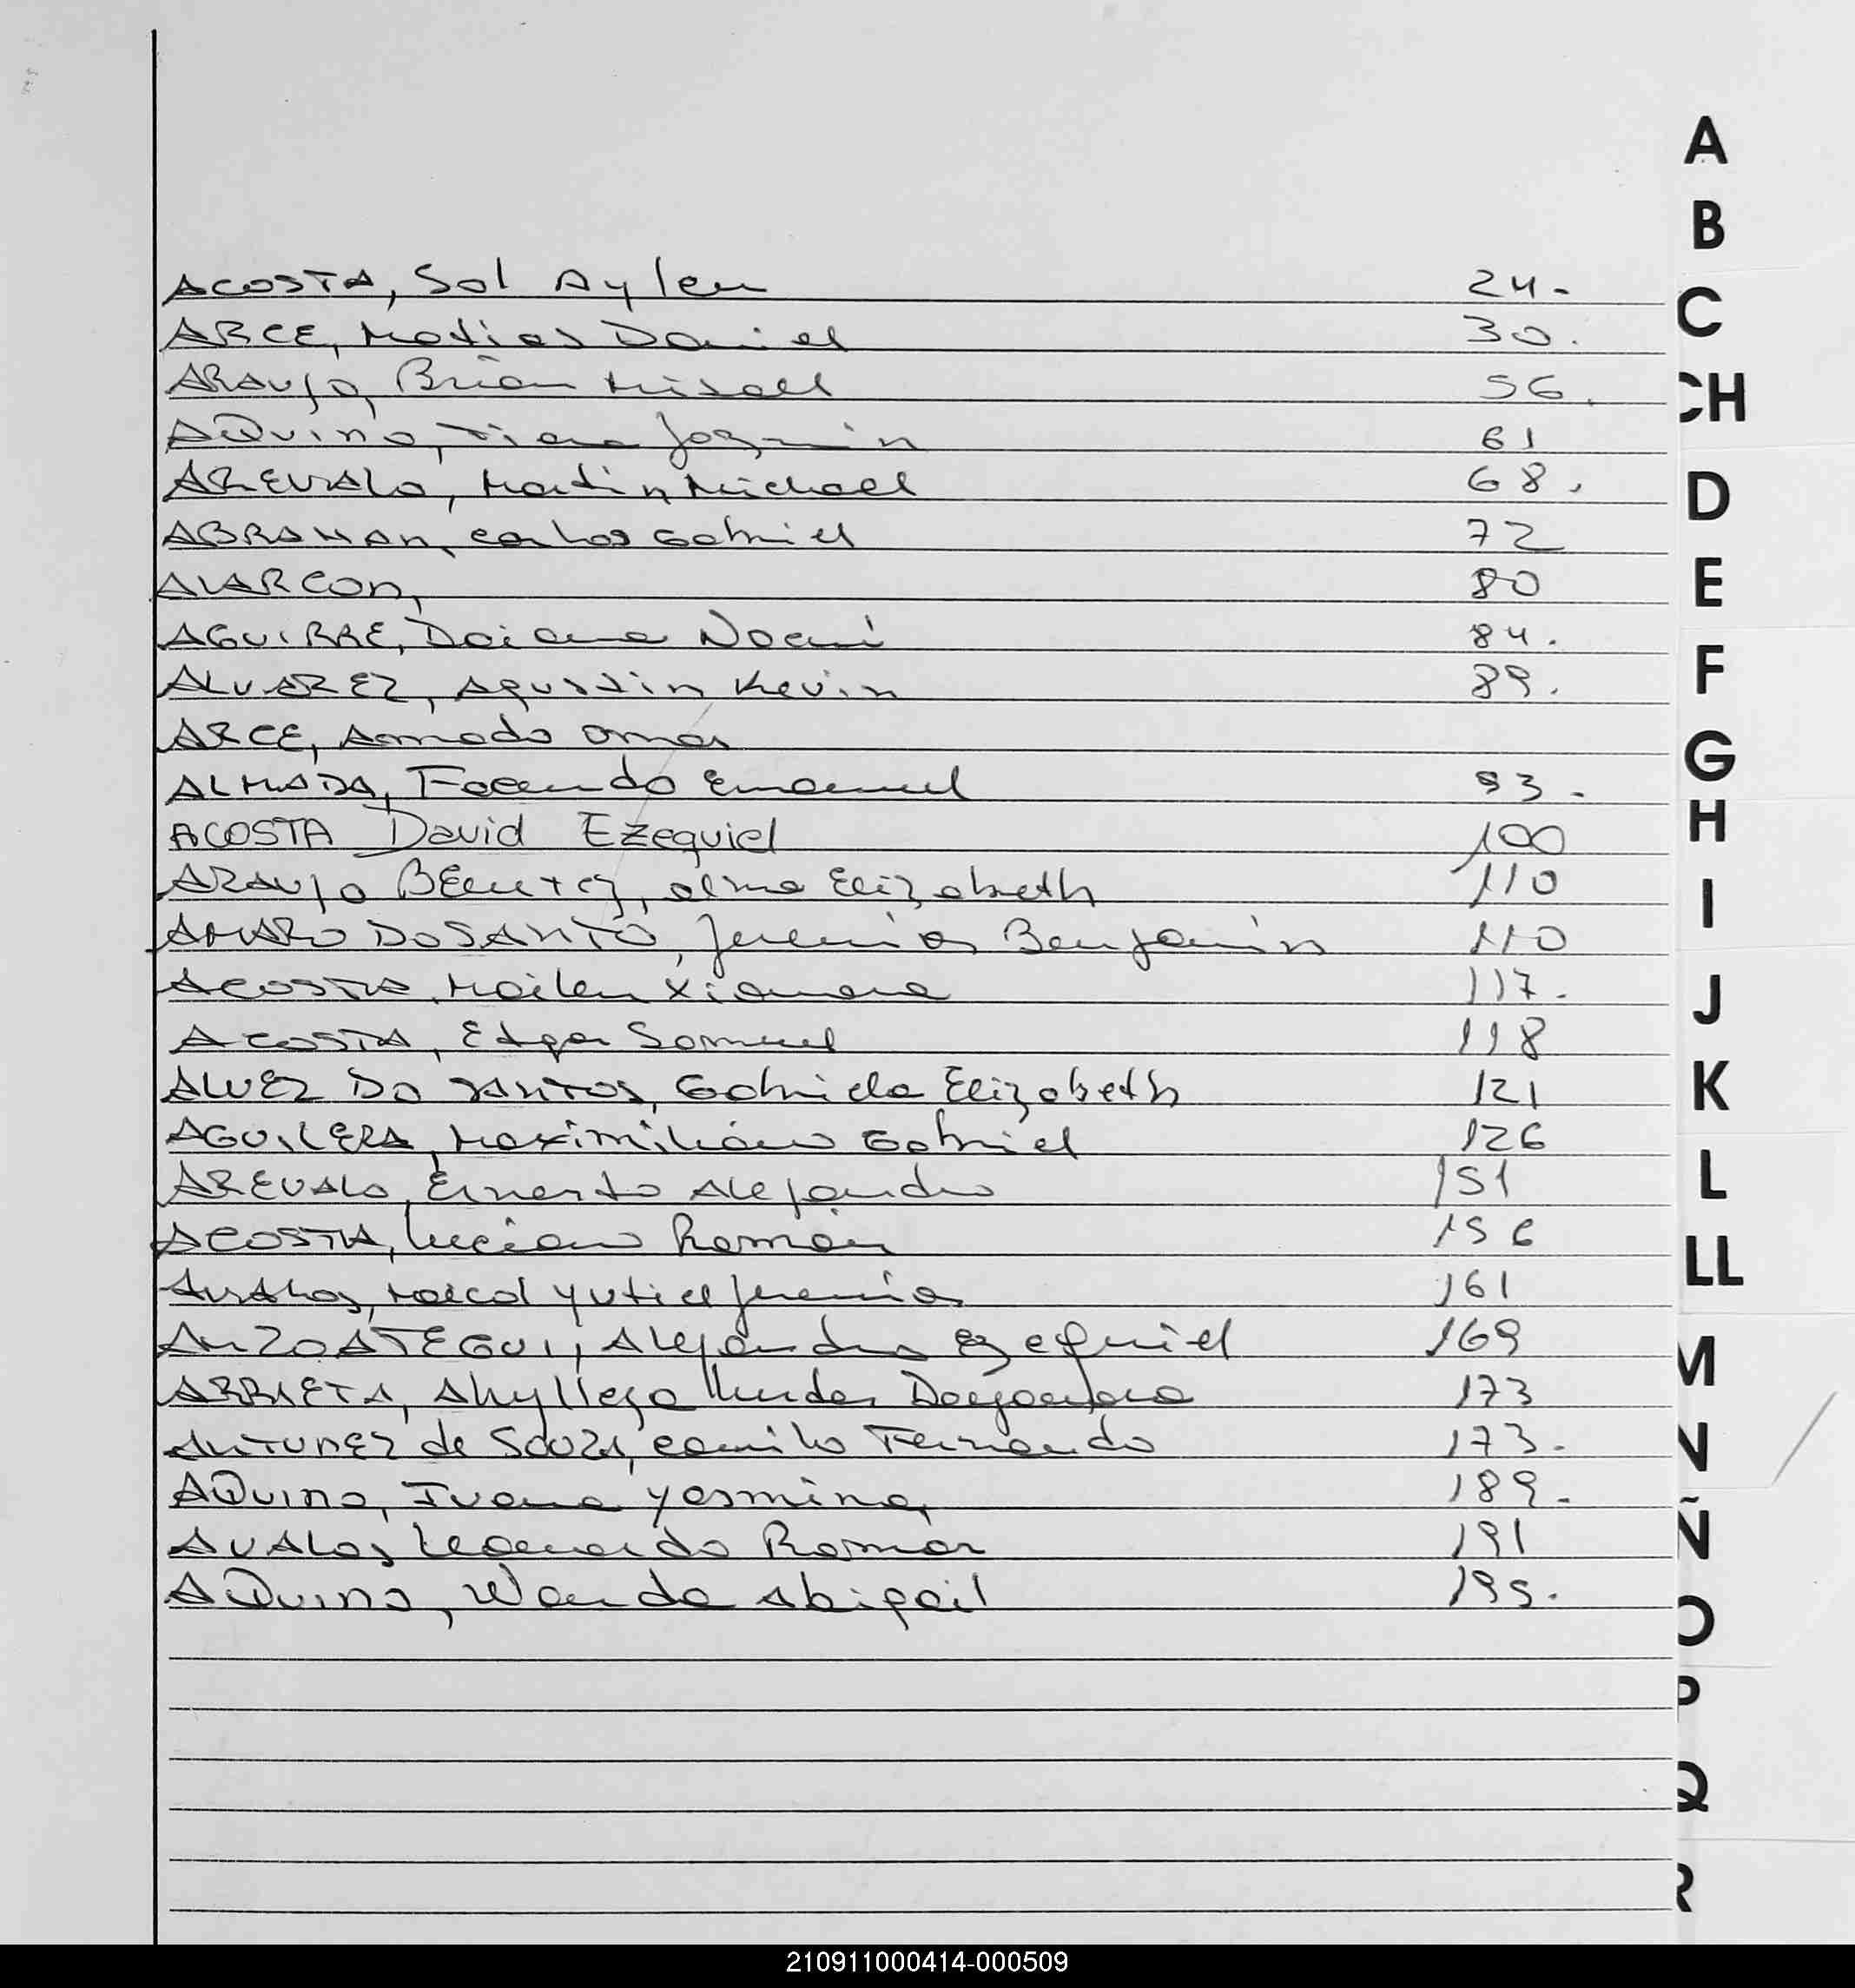 ACOSTA, Sol Aylen 24.
ARCE, Matias Daniel 30.
ARAUJO, Brian Misael 56.
AQuino, Tiana Jazmin 61
AREVALO, Martin Michael 68.
ABRAHAN, Carlos Gabriel 72
ALARCON, 80
AGUIRRE, Daiana Noemi 84.
ALVAREZ, Agustin Kevin 89.
ARCE, Amado Omar
ALMADA, Facundo Emanuel 93.
ACOSTA David Ezequiel 100
ARAUJO BEnitez, Alma Elizabeth 110
AMARO DO SANTO, Jeremias Benjamin 110
ACOSTA, Mailen Xiomara 117.
ACOSTA, Edgar Samuel 118
ALVEZ DO SANTOS, Gabriela Elizabeth 121
AGUILERA, Maximiliano Gabriel 126
AREVALO, Ernesto Alejandro 151
ACOSTA, Luciano Román 156
AVALOS, Maicol Yutiel Jeremias 161
ANZOATEGUI, Alejandro Ezequiel 169
ARRIETA, 173
ANTUNEZ de Souza, Camilo Fernando 173.
AQuino, Ivana Yasmina, 189.
AVALOS, Leonardo Roman 191
AQuino, Wanda Abigail 195.
A
B
C
CH
D
E
F
G
H
I
J
K
L
LL
M
N
Ñ
O
P
Q
R
210911000414-000509